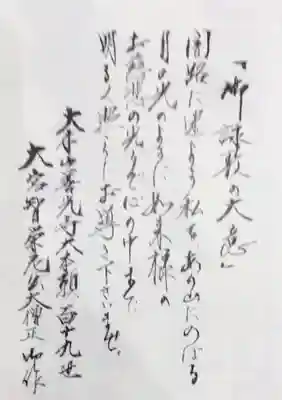 「御詠歌の大意」
闇路に迷よう私を、あの山にのぼる
月の光のように如来様の
お慈悲の光りで心の中まで
明るく照らしお導き下さいませ。
大本山善光寺大本願百十九世
大宮智栄尼公大僧正御作